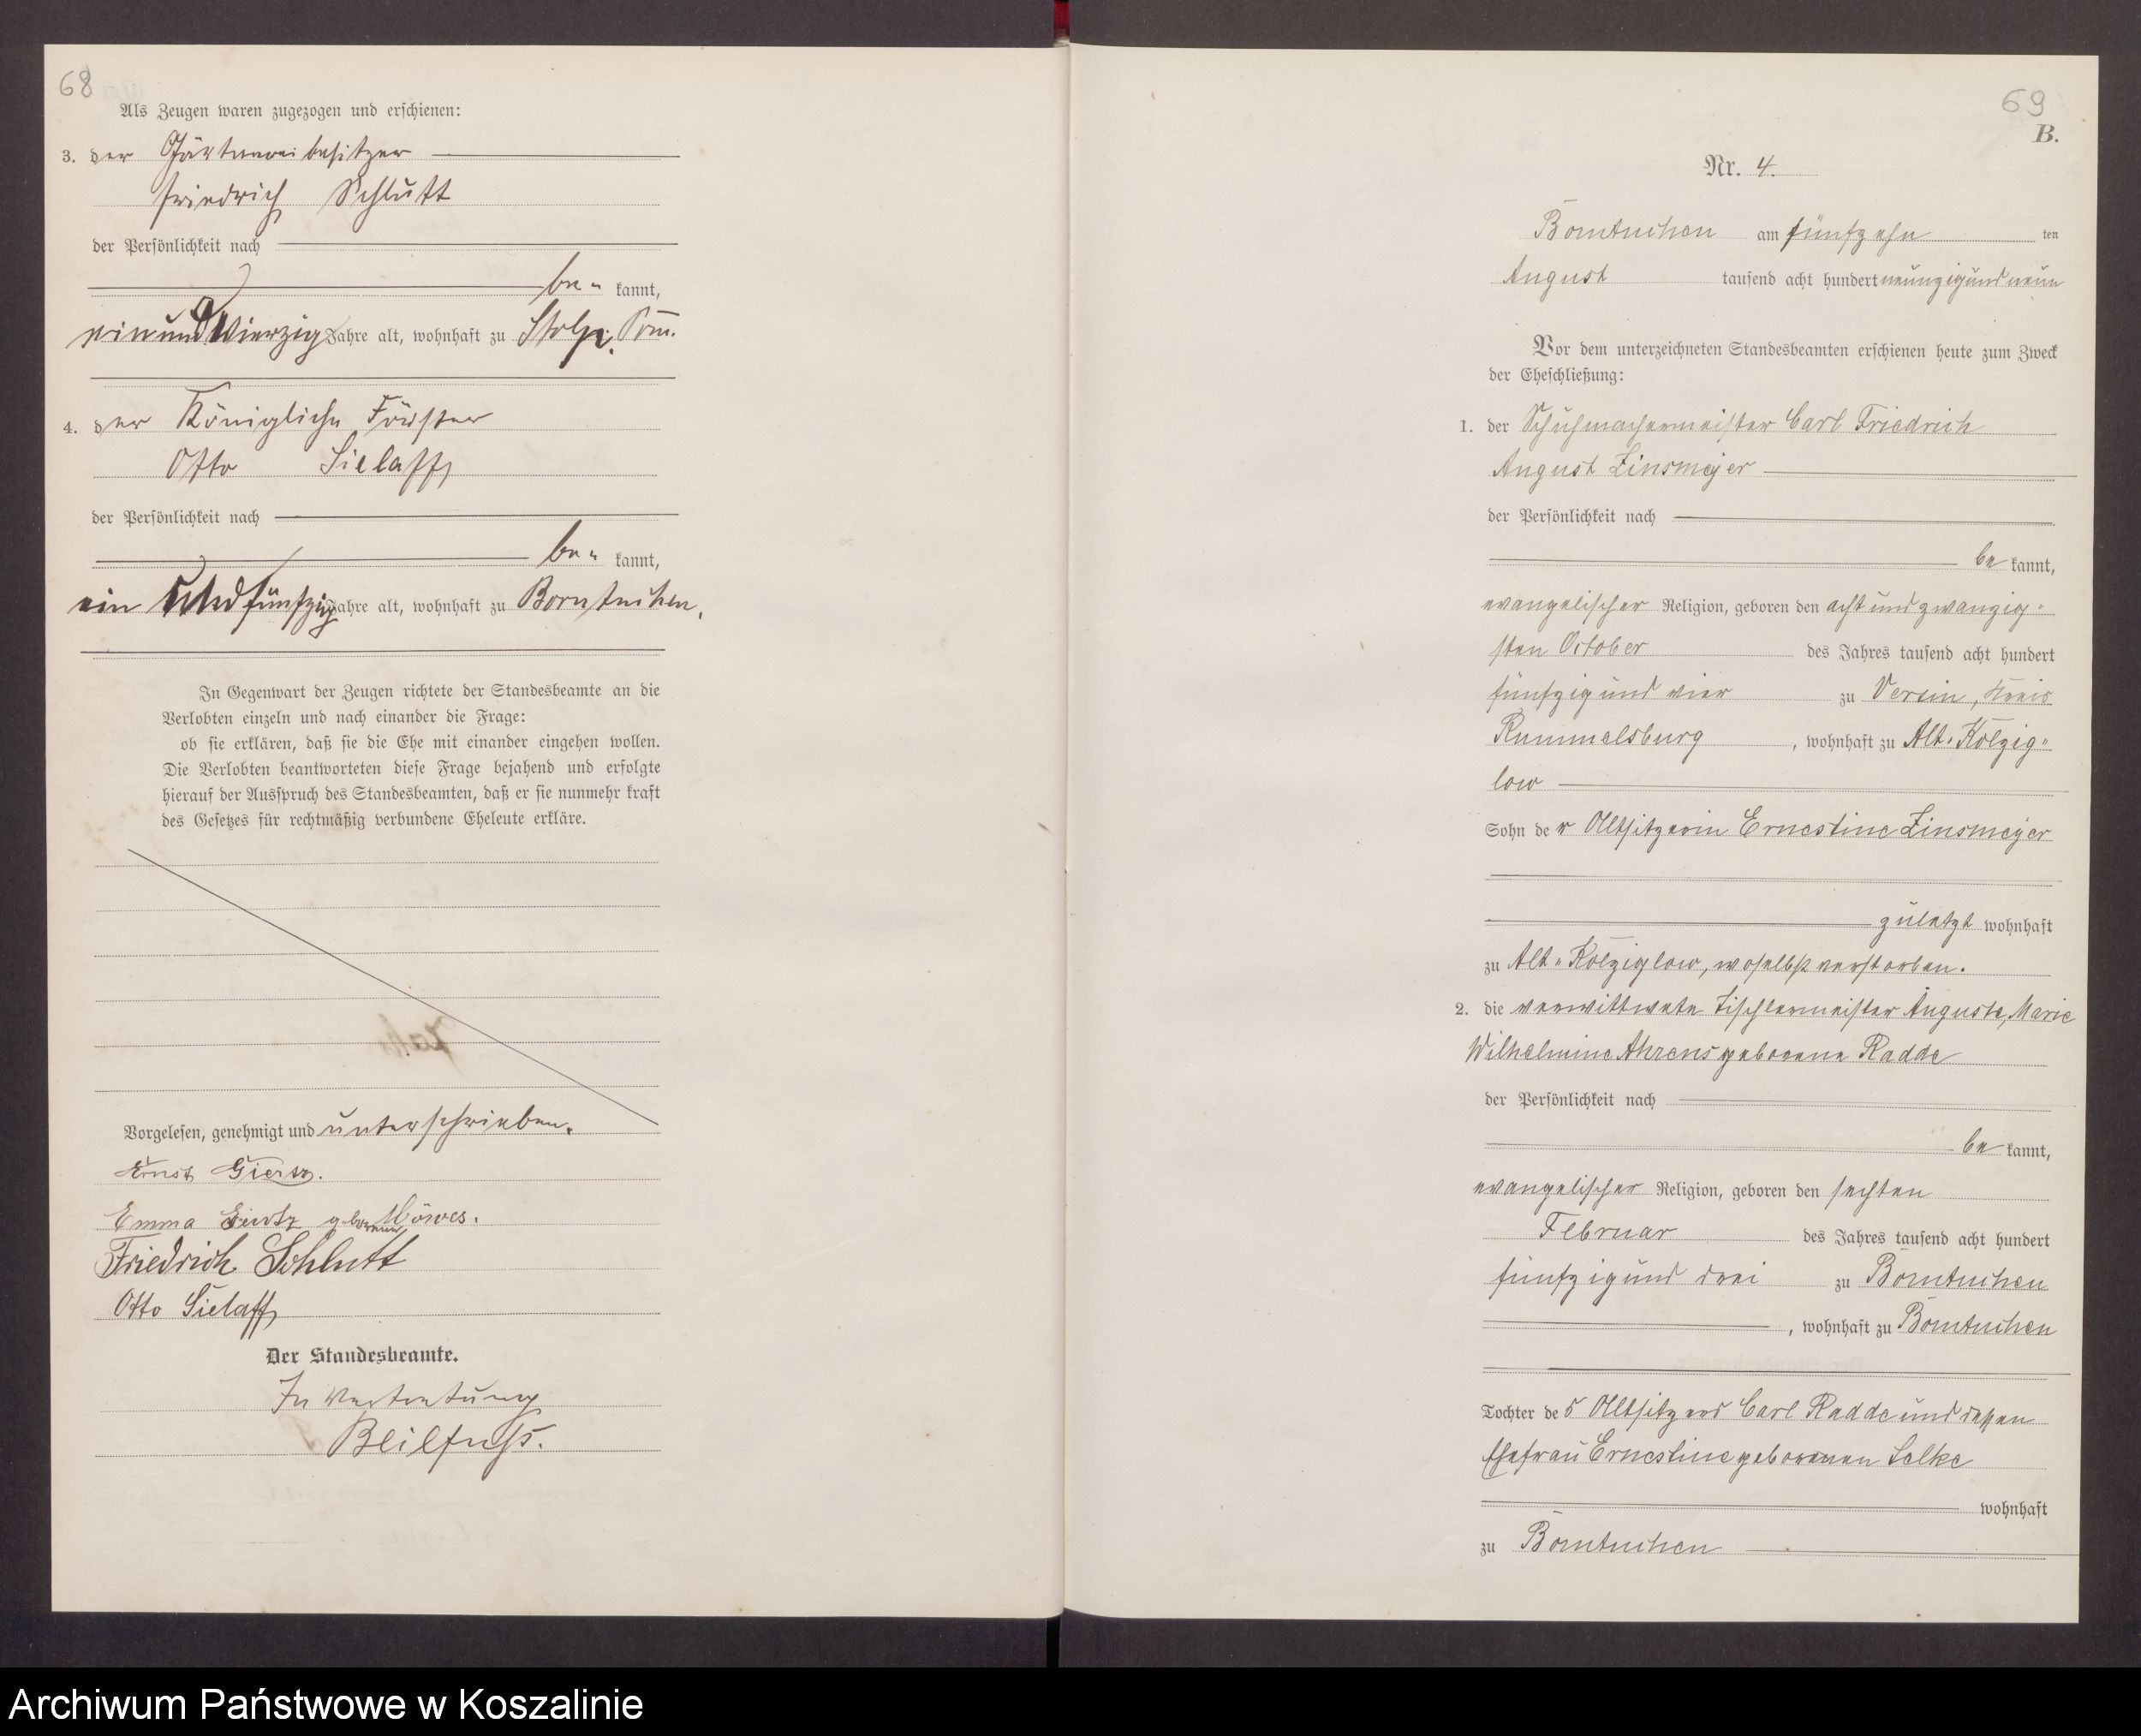 68
Als Zeugen waren zugezogen und erschienen:
3. der Gärtnereibesitzer
Friedrich Schlutt
der Persönlichkeit nach
be- kannt,
ein und vierzig Jahre alt, wohnhaft zu Stolp i. Pom.
4. der Königliche Förster
Otto Sielaff
der Persönlichkeit nach
be- kannt,
ein und fünfzig Jahre alt, wohnhaft zu Borntuchen.
In Gegenwart der Zeugen richtete der Standesbeamte an die
Verlobten einzeln und nach einander die Frage:
ob sie erklären, daß sie die Ehe mit einander eingehen wollen.
Die Verlobten beantworteten diese Frage bejahend und erfolgte
hierauf der Ausspruch des Standesbeamten, daß er sie nunmehr kraft
des Gesetzes für rechtmäßig verbundene Eheleute erkläre.
Vorgelesen, genehmigt und unterschrieben.
Ernst
Emma geborene Möwes.
Friedrich Schlutt
Otto Sielaff
Der Standesbeamte.
In Vertretung
Beilfuss.
69
B.
Nr. 4.
Borntuchen am fünfzehn ten
August tausend acht hundert neunzig und neun
Vor dem unterzeichneten Standesbeamten erschienen heute zum Zweck
der Eheschließung:
1. der Schuhmachermeister Carl Friedrich
August Zinsmejer
der Persönlichkeit nach
be kannt,
evangelischer Religion, geboren den acht und zwanzig-
sten October des Jahres tausend acht hundert
fünfzig und vier zu Versin, Kreis
Rummelsburg, wohnhaft zu Alt-Kolzig-
low
Sohn der Altsitzerin Ernestine Zinsmejer
zuletzt wohnhaft
zu Alt-Kolziglow, woselbst verstorben.
2. die verwittwete Tischlermeister Auguste, Marie
Wilhelmine Ahrens geborene Radde
der Persönlichkeit nach
be kannt,
evangelischer Religion, geboren den sechten
Februar des Jahres tausend acht hundert
fünfzig und drei zu Borntuchen
, wohnhaft zu Borntuchen
Tochter des Altsitzers Carl Radde und dessen
Ehefrau Ernestine geborenen Selke
wohnhaft
zu Borntuchen
Archiwum Państwowe w Koszalinie